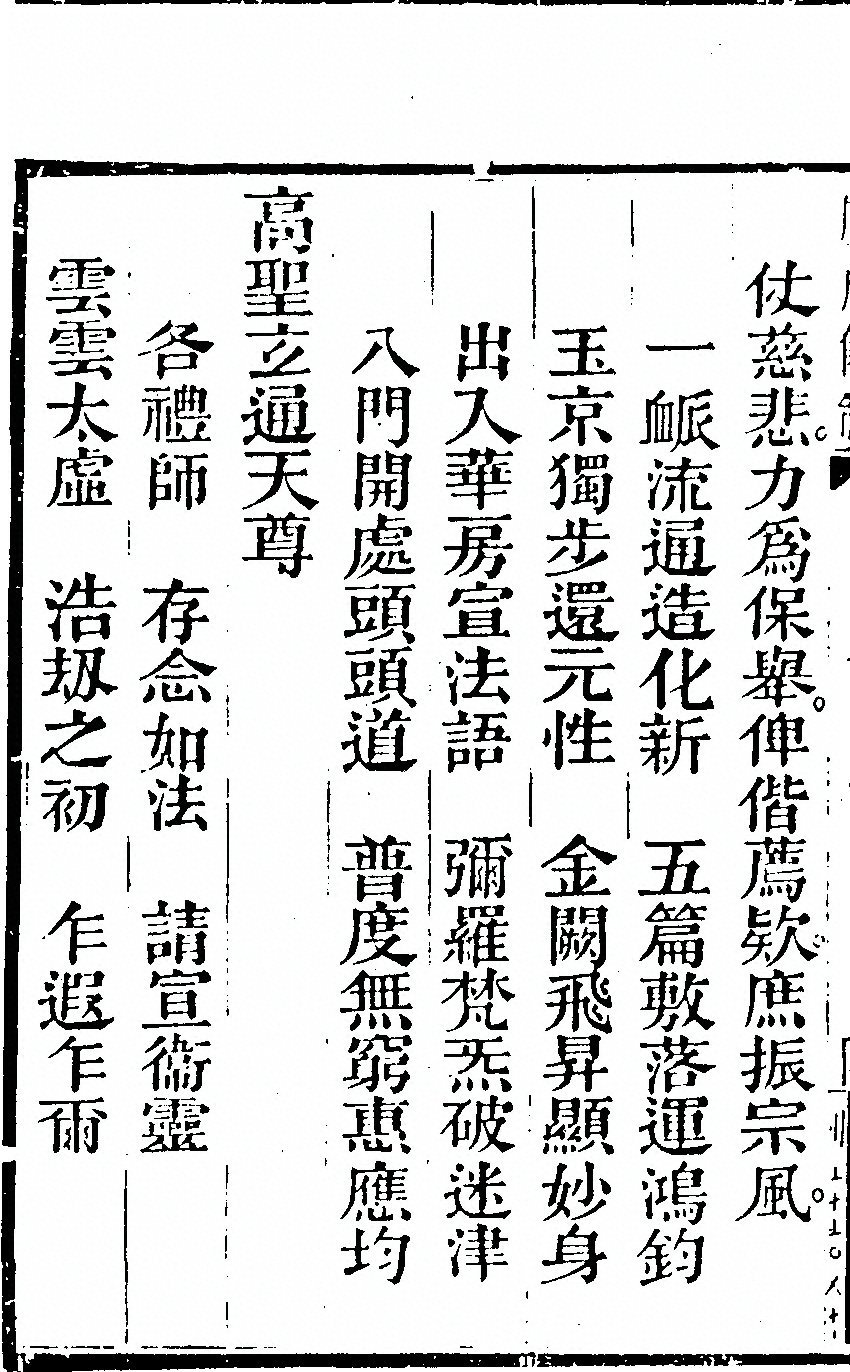 仗慈悲。力爲保舉。俾偕薦欵。庶振宗風。
一䘑流通造化新　五篇敷落運鴻鈞
玉京獨步還元性　金闕飛昇顯妙身
出入華房宣法語　彌羅梵炁破迷津
八門開處頭頭道　普度無窮惠應均
高聖立通天尊
各禮師　存念如法　請宣衞靈
雲雲太虛　浩刼之初　乍遐乍爾